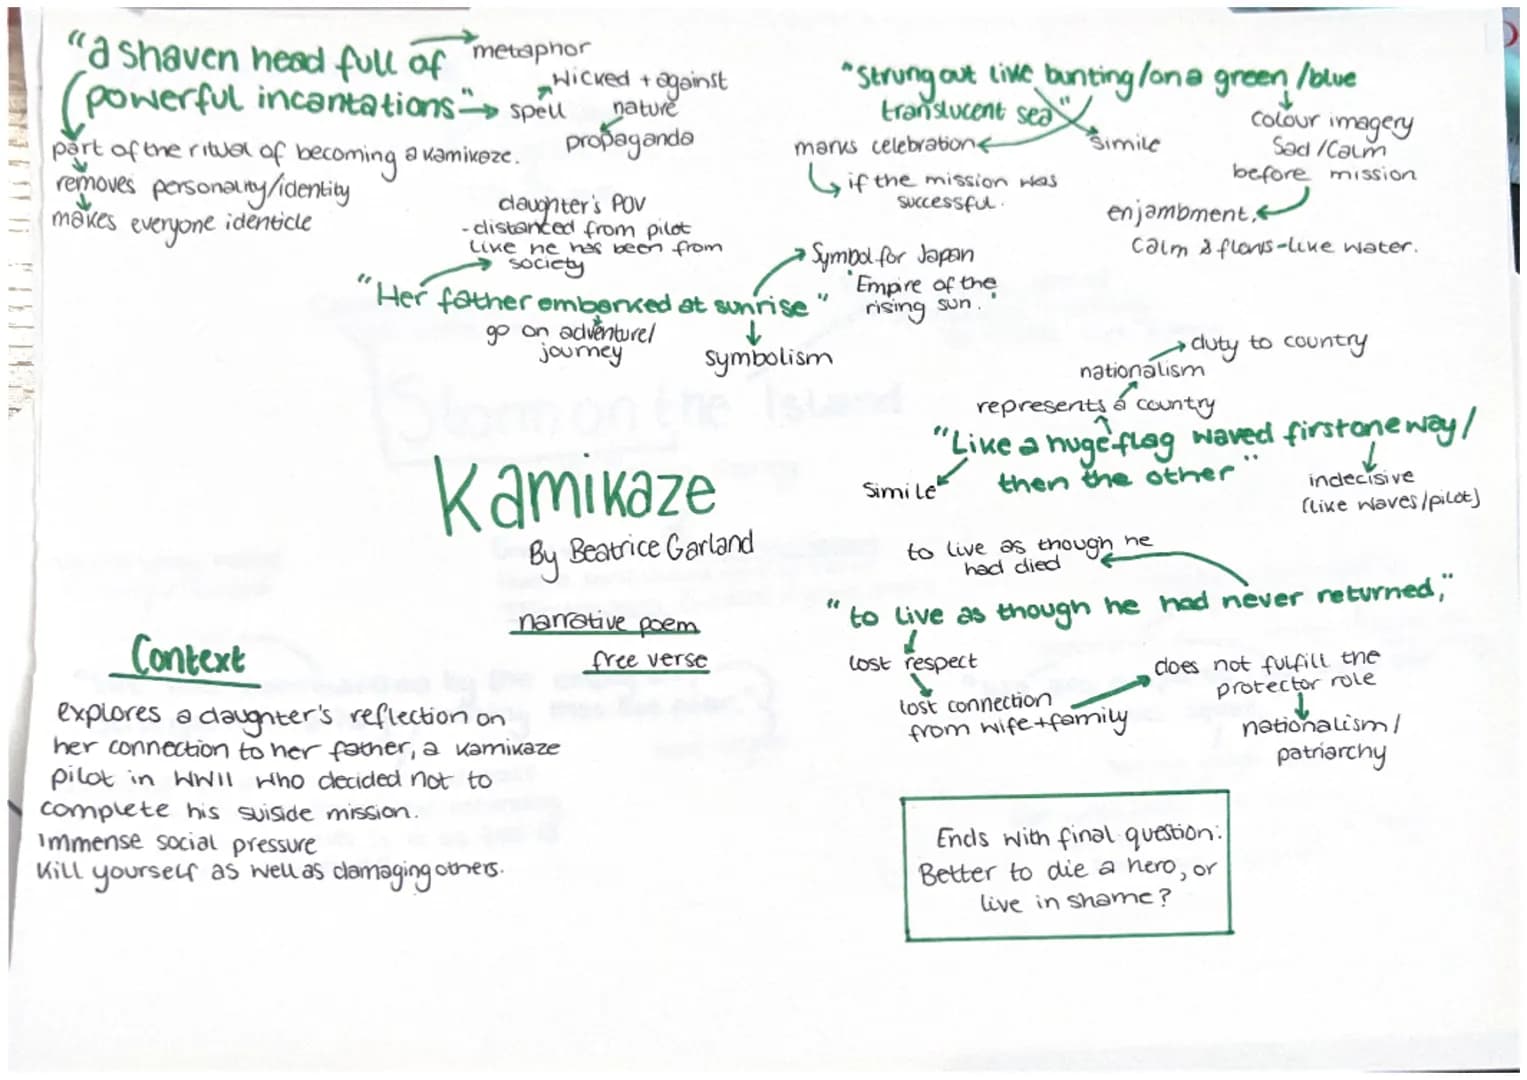 "a shaven head full of
powerful incantations"
metaphor
spell
wicked + against
nature
propaganda
part of the ritual of becoming a kamikaze.
removes personality/identity
makes everyone identicle
"Strung out like bunting/on a green/blue
translucent sea"
marks celebration
if the mission was
successful.
simile
colour imagery
Sad/Calm
before mission
enjambment,
calm & flows-like water.
daughter's POV
-distanced from pilot
like he has been from
society
"Her father embarked at sunrise"
go on adventure/
journey
symbolism
Symbol for Japan
'Empire of the
rising sun.'
duty to country
nationalism
represents a country
"Like a huge flag waved first one way/
then the other"
Simile
indecisive
(like waves/pilot)
Storm on the Island
Kamikaze
By Beatrice Garland
narrative poem
free verse
to live as though he
had died
"to live as though he had never returned,"
lost respect
lost connection
from wife+family
does not fulfill the
protector role
nationalism/
patriarchy
Context
explores a daughter's reflection on
her connection to her father, a kamikaze
pilot in WWII who decided not to
complete his suiside mission.
Immense social pressure
Kill yourself as well as damaging others.
Ends with final question:
Better to die a hero, or
live in shame?